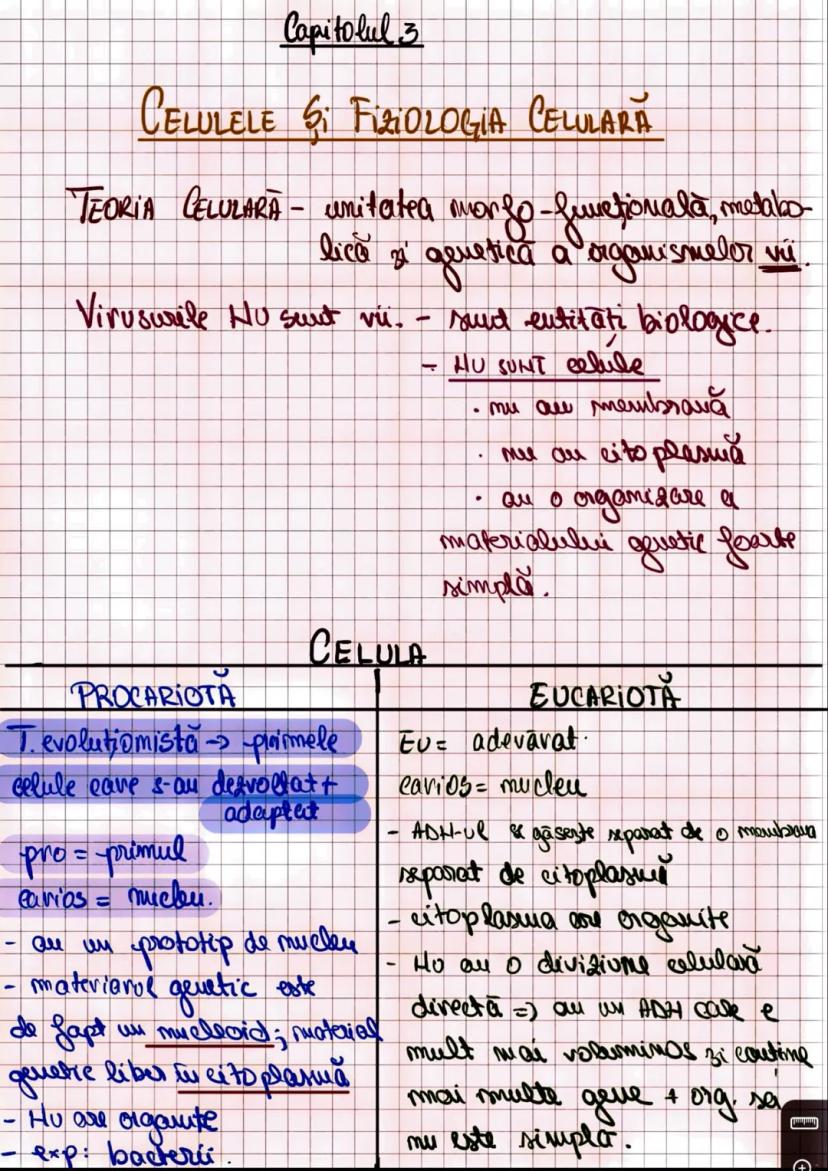 Capitolul 3
CELULELE ȘI FIZIOLOGIA CELULARĂ
TEORIA CELULARĂ - unitatea morfo-funcțională, metabo-
lică și genetică a organismelor vii.
Virusurile NU sunt vii. - sunt entități biologice.
- NU SUNT celule
• nu au membrană
• nu au citoplasmă
• au o organizare a
materialului genetic foarte
simplă.
CELULA
PROCARIOTĂ
T. evoluționistă -> primele
celule care s-au dezvoltat +
adaptat
pro = primul
carios = nucleu.
- au un prototip de nucleu
- materialul genetic este
de fapt un nucleoid; material
genetic liber în citoplasmă
- Nu are organite
- exp: bacterii.
EUCARIOTĂ
EU = adevărat
carios = nucleu
- ADN-ul se găsește separat de o membrană
separat de citoplasmă
- citoplasma are organite
- Nu au o diviziune celulară
directă => au un ADN care e
mult mai voluminos și conține
mai multe gene + org. sa
nu este simplă.